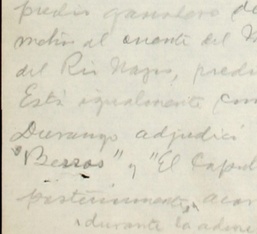 predio ganadero de
del Rio Nazas, predi
Está igualmente com
Durango adjudicó
"Berros" y "El Capul
posteriormente, acor
durante la admi